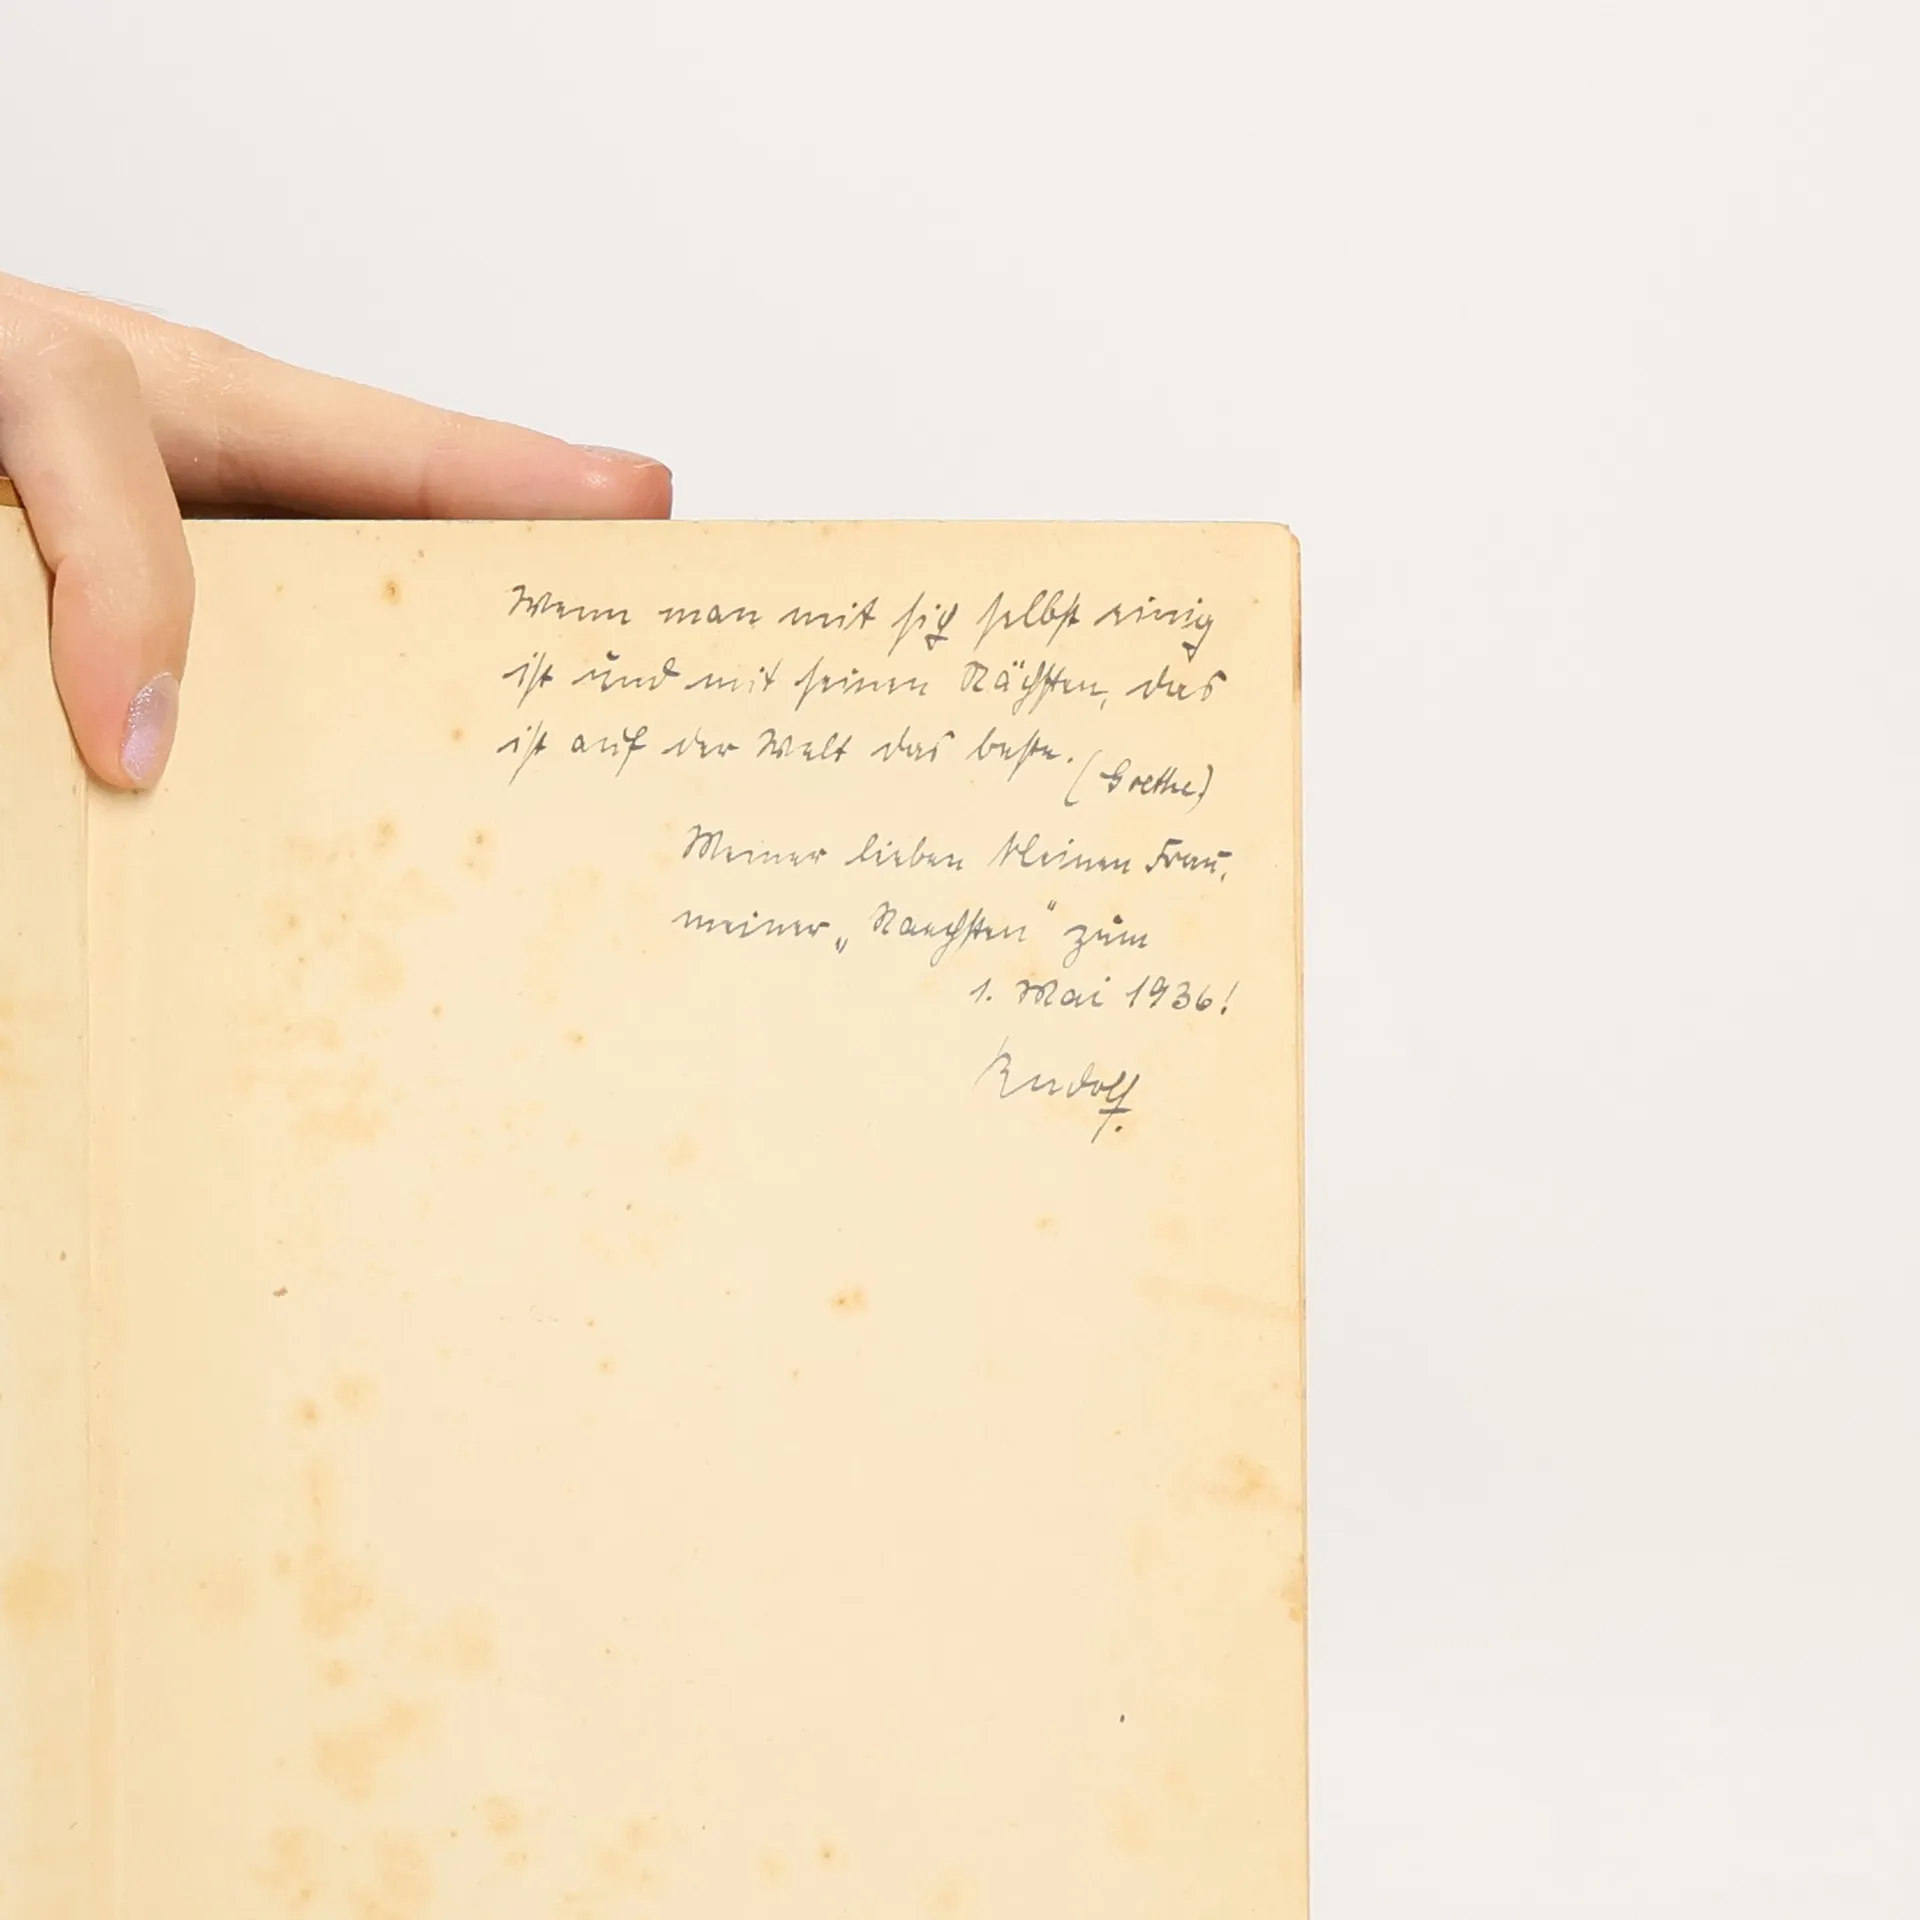 Wenn man mit sich selbst einig
ist und mit seinen Nächsten, das
ist auf der Welt das beste.
(Goethe)
Meiner lieben kleinen Frau,
meiner „Naechsten" zum
1. Mai 1936!
Rudolf.